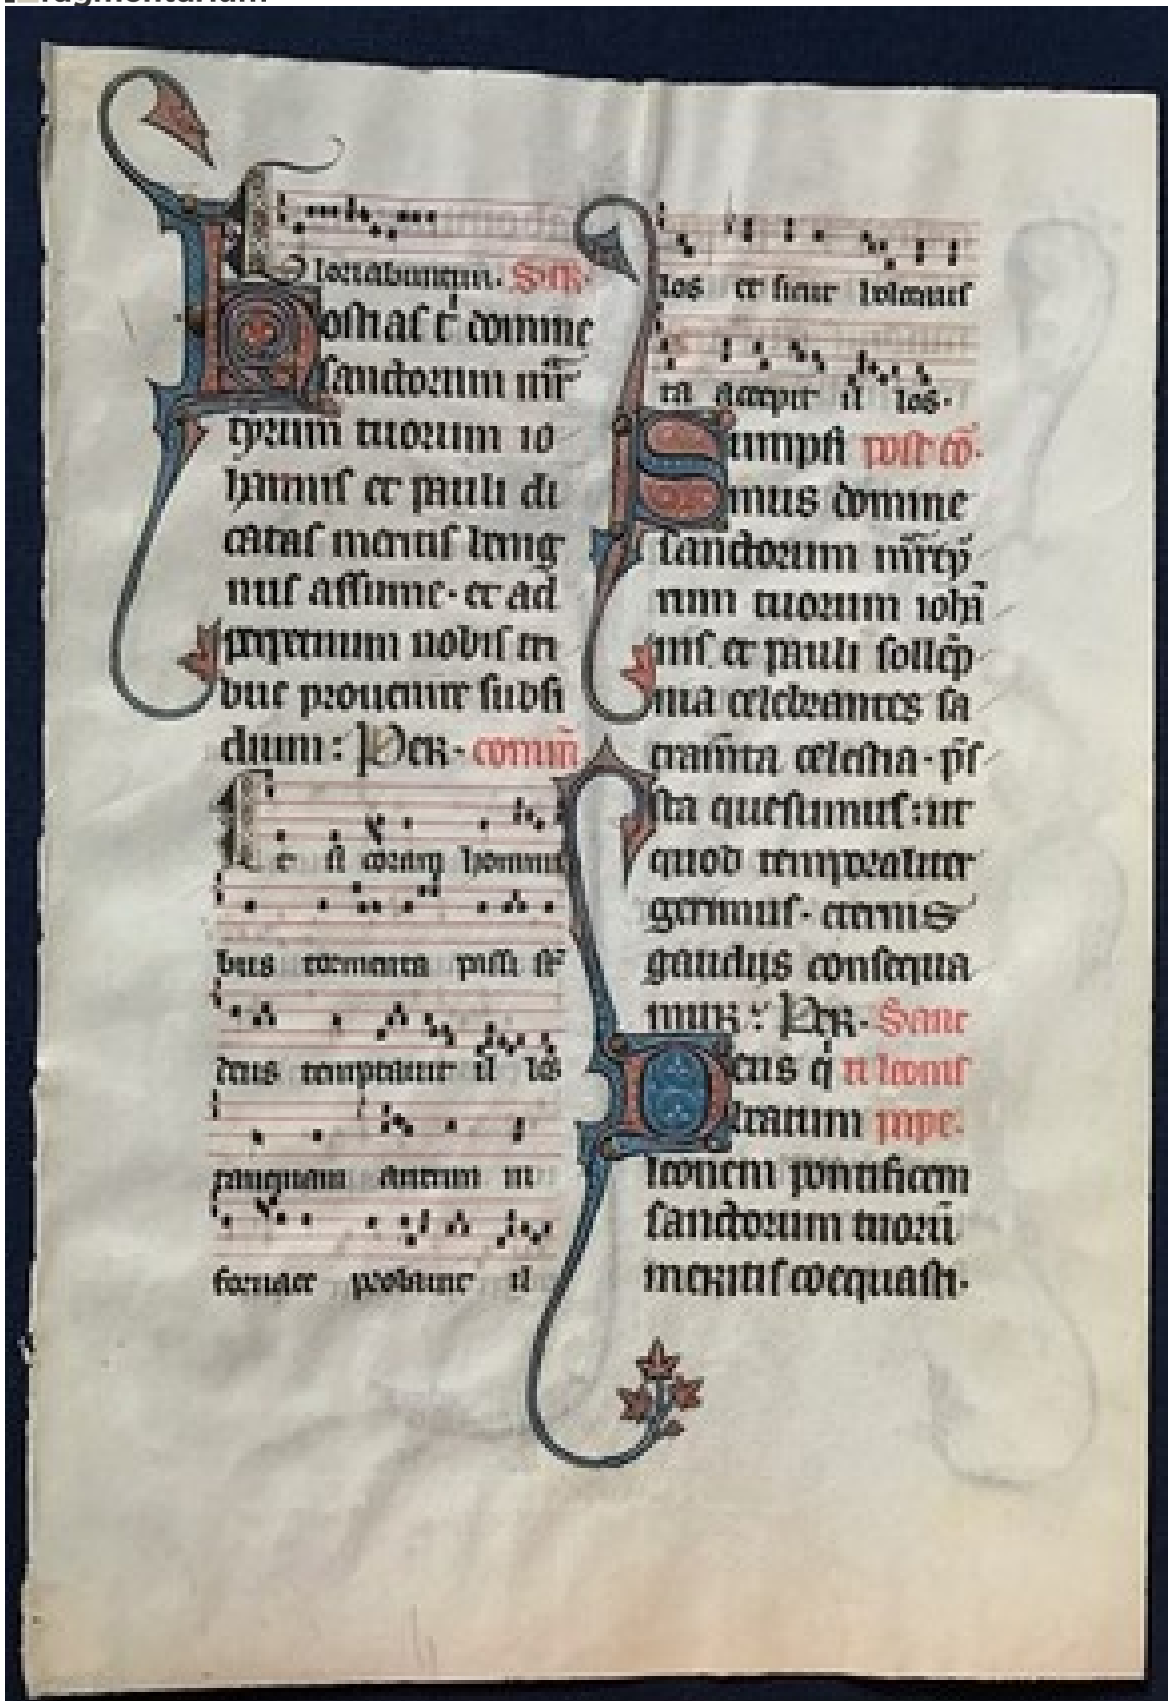 ragmentarium
loriabuntur. Secr.
Hostias t' domine
sanctorum mr̄
tyrum tuorum io
hannis et pauli di
catas meritis benig
nus assume. et ad
perpetuum nobis tri
bue prouenire subsi
dium: Per. comm̄
Et si coram homini
bus tormenta passi st̄
deus temptauit il los
tanquam aurum in
fornace probauit il
los et sicut holocaus
ta accepit il los.
Sumpsi post cō.
mus domine
sanctorum mr̄ty
rum tuorum ioh̄n
nis et pauli sollēp
nia celebrantes sa
cram̄ta celestia. p̄s
sta quesumus: ut
quod temporaliter
gerimus. eternis
gaudijs consequa
mur: Per. Sanc
Deus q̄ ti leonis
beatum pape.
leonem pontificem
sanctorum tuorū
meritis coequasti.